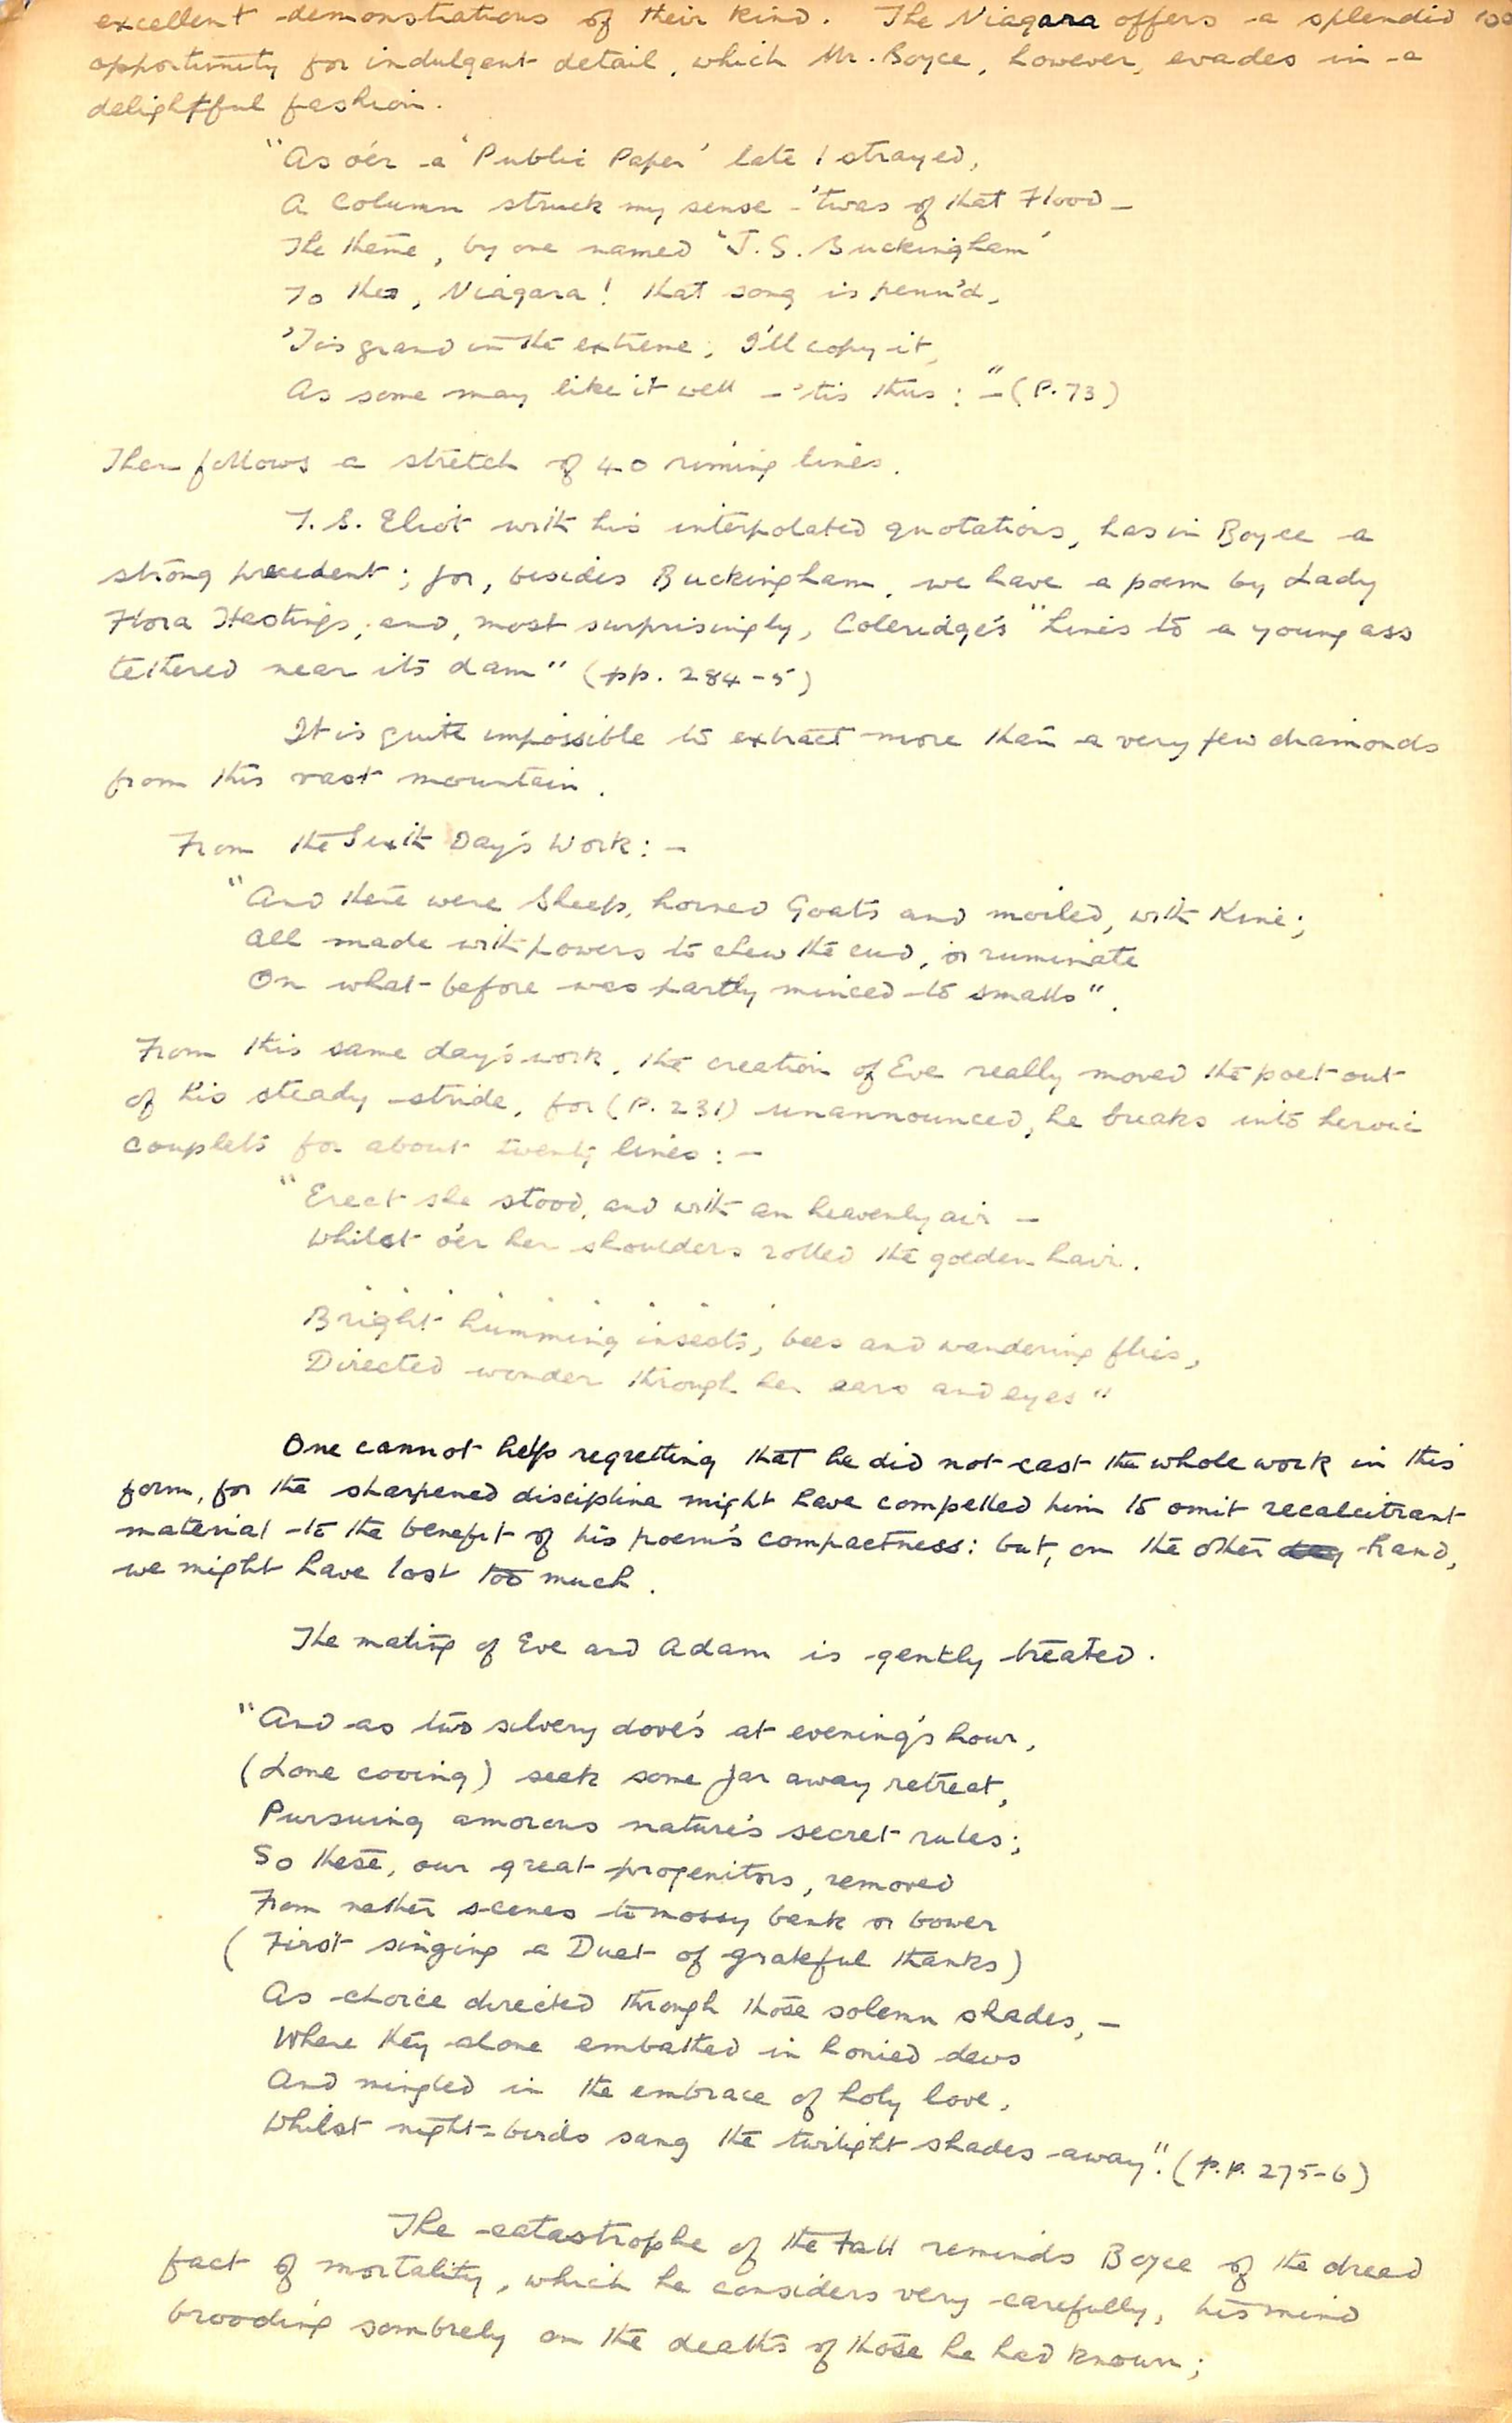 excellent demonstrations of their kind. The Niagara offers a splendid
opportunity for indulgent detail, which Mr. Boyce, however, evades in a
delightful fashion.
"As o'er a 'Public Paper' late I strayed,
A Column struck my sense - 'twas of that Flood -
The theme, by one named 'J. S. Buckingham'
To thee, Niagara! that song is penn'd,
'Tis grand in the extreme; I'll copy it,
As some may like it well - 'tis thus: " - (P. 73)
Then follows a stretch of 40 riming lines.
T. S. Eliot with his interpolated quotations, has in Boyce a
strong precedent; for, besides Buckingham, we have a poem by Lady
Flora Hastings; and, most surprisingly, Coleridge's "Lines to a young ass
tethered near its dam" (pp. 284-5)
It is quite impossible to extract more than a very few diamonds
from this vast mountain.
From the Sixth Day's Work: -
"And there were Sheep, horned Goats and moiled, with Kine;
All made with powers to chew the cud, or ruminate
On what before was partly minced to smalls".
From this same day's work, the creation of Eve really moved the poet out
of his steady stride, for (P. 231) unannounced, he breaks into heroic
couplets for about twenty lines: -
"Erect she stood, and with an heavenly air -
Whilst o'er her shoulders rolled the golden hair.
. . . . . . .
Bright humming insects, bees and wandering flies,
Directed wonder through her ears and eyes"
One cannot help regretting that he did not cast the whole work in this
form, for the sharpened discipline might have compelled him to omit recalcitrant
material - to the benefit of his poem's compactness: but, on the other hand,
we might have lost too much.
The mating of Eve and Adam is gently treated.
"And as two silvery dove's at evening's hour,
(Lone cooing) seek some far away retreat,
Pursuing amorous nature's secret rules;
So these, our great progenitors, removed
From nether scenes to mossy bank or bower
(First singing a Duet of grateful thanks)
As choice directed through those solemn shades, -
Where they alone embathed in honied dews
And mingled in the embrace of holy love,
Whilst night-birds sang the twilight shades away". (p.p. 275-6)
The catastrophe of the Fall reminds Boyce of the dread
fact of mortality, which he considers very carefully, his mind
brooding sombrely on the deaths of those he had known;